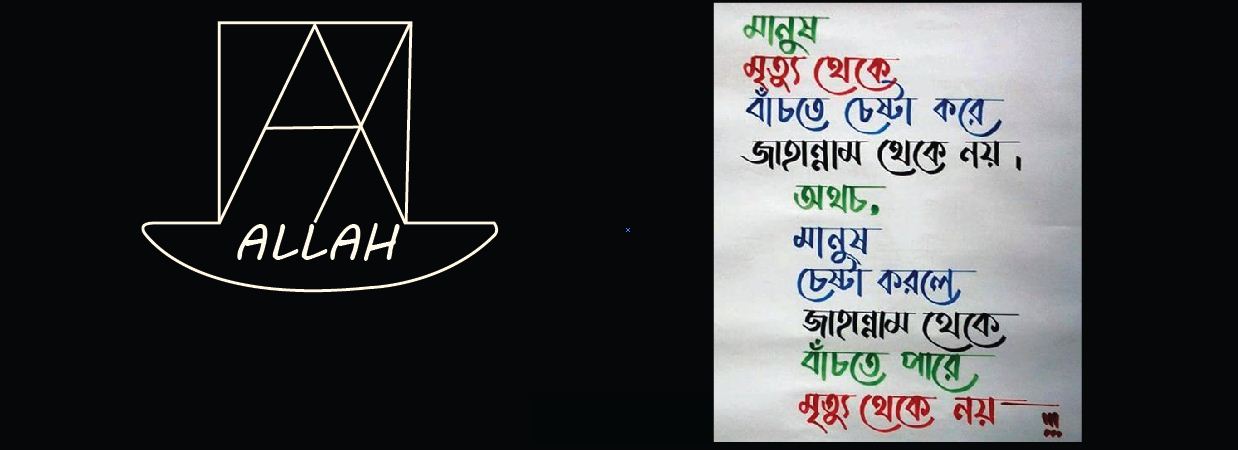 ALLAH
মানুষ
মৃত্যু থেকে
বাঁচতে চেষ্টা করে
জাহান্নাম থেকে নয়।
অথচ,
মানুষ
চেষ্টা করলে
জাহান্নাম থেকে
বাঁচতে পারে
মৃত্যু থেকে নয় — !!!